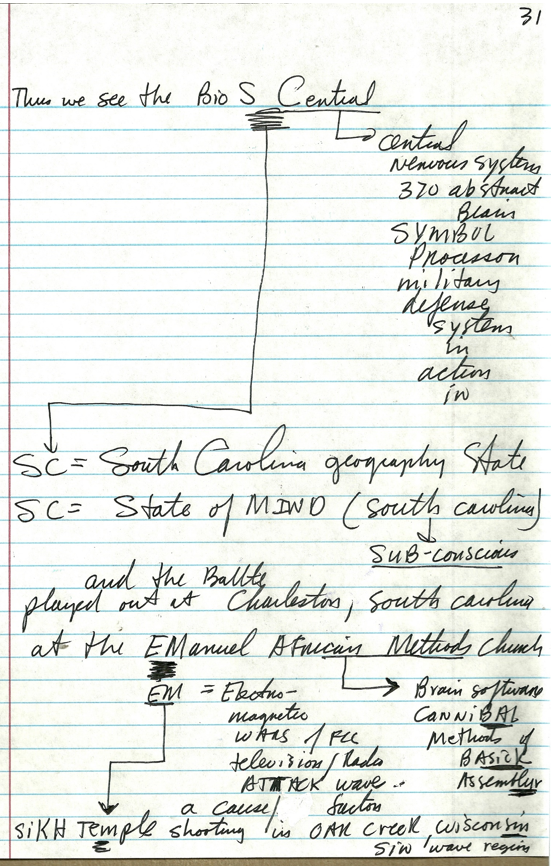 31
Thus we see the Bio S Central
Central
Nervous System
370 abstract
Brain
SYMBOL
Processor
military
defense
system
in
action
in
SC = South Carolina geography State
SC = State of MIND (South Carolina)
SUB-conscious
and the Ballte
played out at Charleston, South Carolina
at the EManuel African Methods Church
EM = Electro-
magnetic
WARS of FCC
television/Radio
ATTACK wave ..
Brain software
CANNiBAL
Methods of
BASicK
Assemblyr
a cause/factor
SiKH Temple shooting in OAK Creek, Wisconsin
SiN wave region